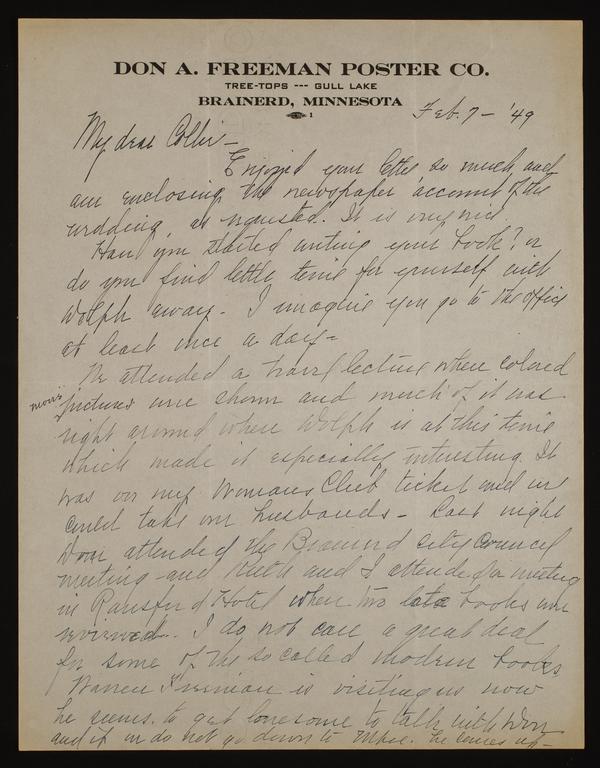 DON A. FREEMAN POSTER CO.
TREE-TOPS --- GULL LAKE
BRAINERD, MINNESOTA
1
Feb. 7 - '49
My dear Collie -
Enjoyed your letter so much, and
am enclosing the newspaper account of the
wedding, as requested. It is very nice.
Have you started writing your book? or
do you find little time for yourself with
Wolph away - I imagine you go to the office
at least once a day -
We attended a travel lecture when colored
movie
pictures were shown and much of it was
right around where Wolph is at this time
which made it especially interesting. It
was on my Womans Club ticket and we
could take our husbands - Last night
Don attended the Brainerd city council
meeting and Ruth and I attended a meeting
in Ransford Hotel when two late books were
reviewed. I do not care a great deal
for some of the so called modern books
Warren Freeman is visiting us now
he seems to get lonesome to talk with Don
and if we do not go down to Mpls. he comes up -